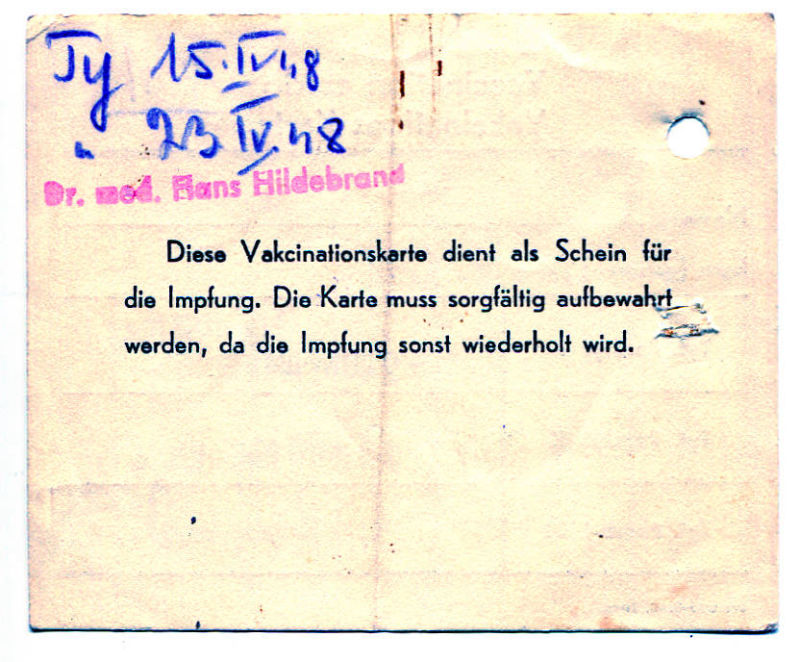 Ty 15. IV. 48
" 23 IV. 48
Dr. med. Hans Hildebrand
Diese Vakcinationskarte dient als Schein für
die Impfung. Die Karte muss sorgfältig aufbewahrt
werden, da die Impfung sonst wiederholt wird.